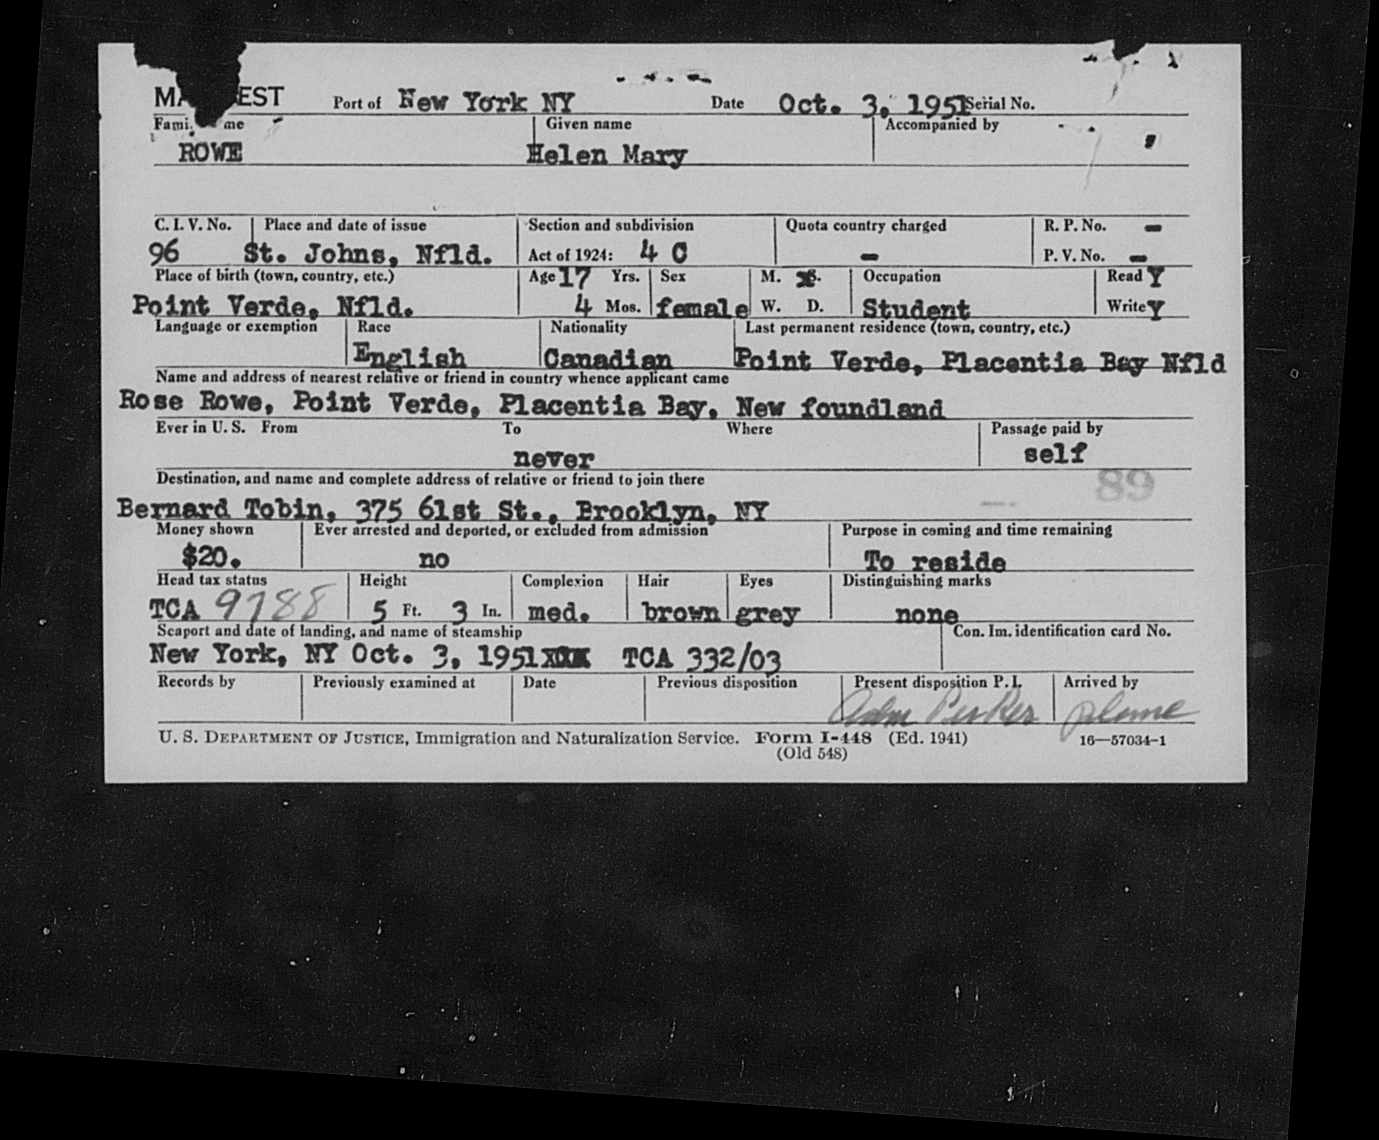 MA EST Port of New York NY Date Oct. 3, 1951 Serial No.
Fami me Given name Accompanied by
ROWE Helen Mary
C. I. V. No. Place and date of issue Section and subdivision Quota country charged R. P. No. -
96 St. Johns, Nfld. Act of 1924: 4 C - P. V. No. -
Place of birth (town, country, etc.) Age 17 Yrs. Sex M. S. Occupation Read Y
Point Verde, Nfld. 4 Mos. female W. D. Student Write Y
Language or exemption Race Nationality Last permanent residence (town, country, etc.)
English Canadian Point Verde, Placentia Bay Nfld
Name and address of nearest relative or friend in country whence applicant came
Rose Rowe, Point Verde, Placentia Bay, New foundland
Ever in U. S. From To Where Passage paid by
never self
Destination, and name and complete address of relative or friend to join there
89
Bernard Tobin, 375 61st St., Brooklyn, NY
Money shown Ever arrested and deported, or excluded from admission Purpose in coming and time remaining
$20. no To reside
Head tax status Height Complexion Hair Eyes Distinguishing marks
TCA 9788 5 Ft. 3 In. med. brown grey none
Seaport and date of landing, and name of steamship Con. Im. identification card No.
New York, NY Oct. 3, 1951XXX TCA 332/03
Records by Previously examined at Date Previous disposition Present disposition P. I. Arrived by
Adm plane
U. S. DEPARTMENT OF JUSTICE, Immigration and Naturalization Service. Form I-448 (Ed. 1941) 16—57034-1
(Old 548)